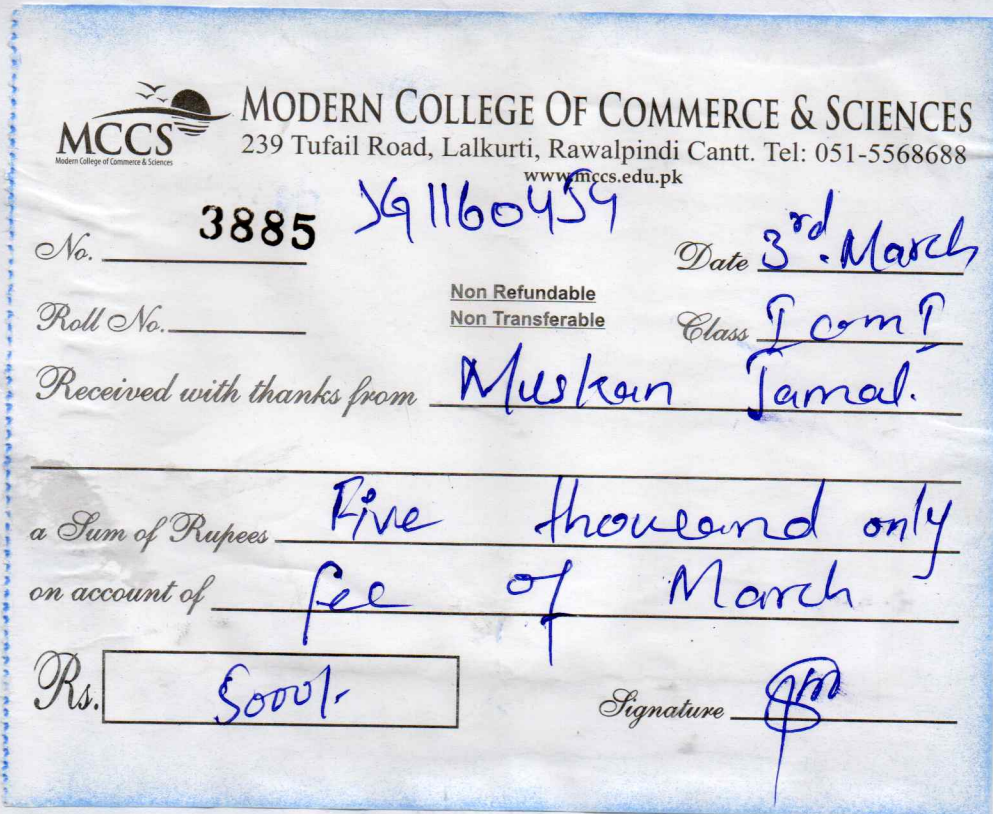 MCCS
Modern College of Commerce & Sciences
MODERN COLLEGE OF COMMERCE & SCIENCES
239 Tufail Road, Lalkurti, Rawalpindi Cantt. Tel: 051-5568688
www.mccs.edu.pk
No. 3885 1160454
Date 3rd. March
Roll No. Non Refundable
Non Transferable
Class I com I
Received with thanks from Muskan Jamal.
a Sum of Rupees Five thousand only
on account of fee of March
Rs. 5000/-
Signature